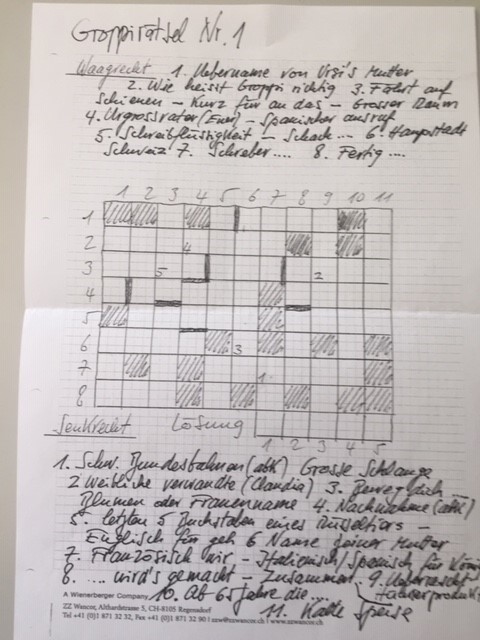 Groppirätsel Nr. 1
Waagrecht 1. Uebername von Mutter
2. Wie heisst Groppi richtig 3. Fährt auf
Schienen – Kurz für an das – Grosser Raum
4. Urgrossvater – Spanischer ausruf
5. Schreibflüssigkeit – Schach... 6. Haupstadt
Schweiz 7. Schreber.... 8. Fertig....
1 2 3 4 5 6 7 8 9 10 11
1
2 4
3 5 2
4
5
6 3
7 1
8
Senkrecht Lösung
1 2 3 4 5
1. Schw. Bundesbahnen (abk) Grosse Schlange
2 Weibliche verwandte (Claudia) 3. Beweg dich ...
Blumen oder Frauenname 4. Nachnahme (abk)
5. letzten 5 Buchstaben eines Rüsseltiers –
Englisch für geh 6 Name deiner Mutter
7. Französisch wir – Italienisch/Spanisch für
8. ... wird's gemacht – Zusammen.. 9. Ueberrascht
10. Ab 65 Jahre die...
11. Kalte Speise
A Wienerberger Company
ZZ Wancor, Althardstrasse 5, CH-8105 Regensdorf
Tel +41 (0)1 871 32 32, Fax +41 (0)1 871 32 90 | zzw@zzwancor.ch | www.zzwancor.ch